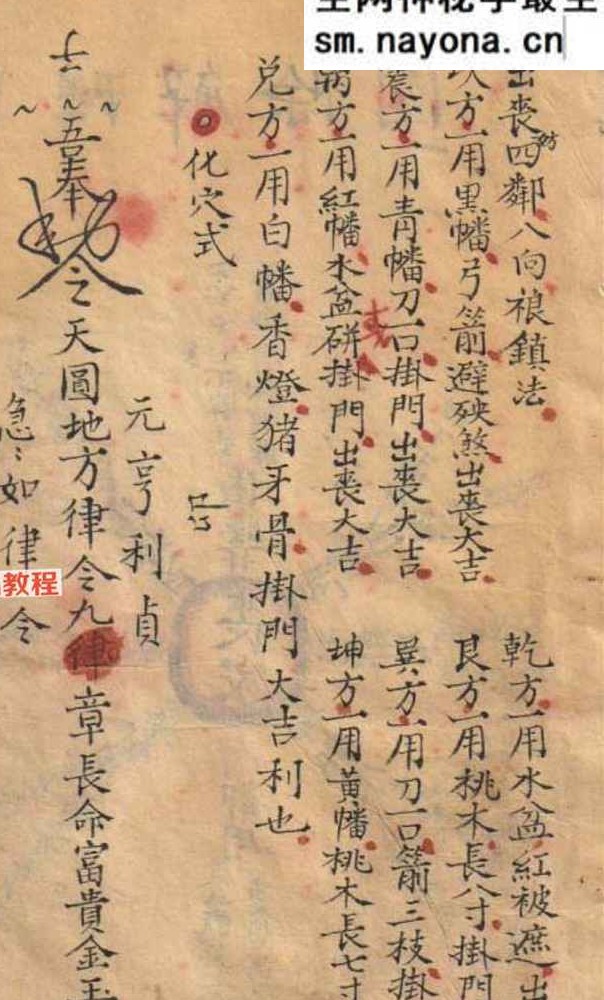 sm.nayona.cn
出喪四鄰八向鎮法
乾方一用水盆紅被遮出
方一用黑幡弓箭避殃煞出喪大吉
艮方一用桃木長八寸掛門
震方一用青幡刀一口掛門出喪大吉
巽方一用刀一口箭三枝掛
方一用紅幡水盆掛門出喪大吉
坤方一用黃幡桃木長七寸
兌方一用白幡香燈猪牙骨掛門大吉利也
化穴式
元亨利貞
吾奉勅令之天圓地方律令九律章長命富貴金玉
急〻如律令
教程